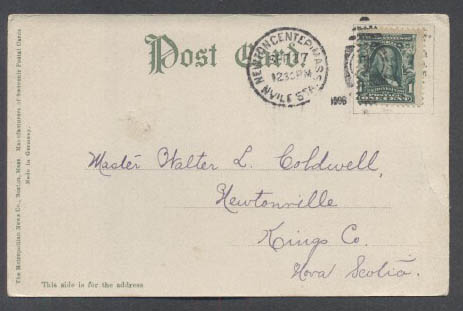 Post Card.
NEWTON CENTER, MASS.
17
12 30 PM
N'VILLE STA.
1906
ONE CENT
Master Walter L. Coldwell,
Newtonville
Kings Co.
Nova Scotia.
This side is for the address
The Metropolitan News Co., Boston, Mass. Manufacturers of Souvenir Postal Cards
Made in Germany.